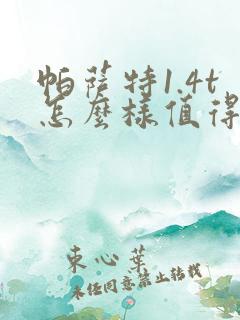 帕萨特1.4t
怎麼樣值得
東心葉
未经同意禁止转载